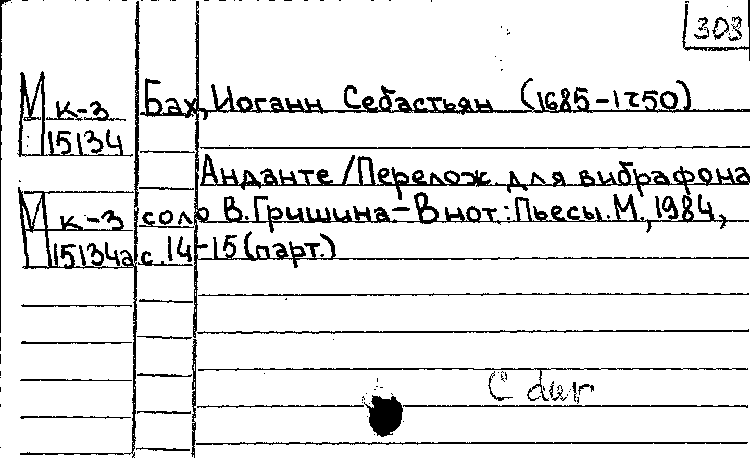 303
М к-3 Бах, Иоганн Себастьян (1685-1750)
15134
Анданте /Перелож. для вибрафона
М к-3 соло В.Гришина.- В нот: Пьесы. М., 1984,
15134а с. 14-15 (парт.)
C dur